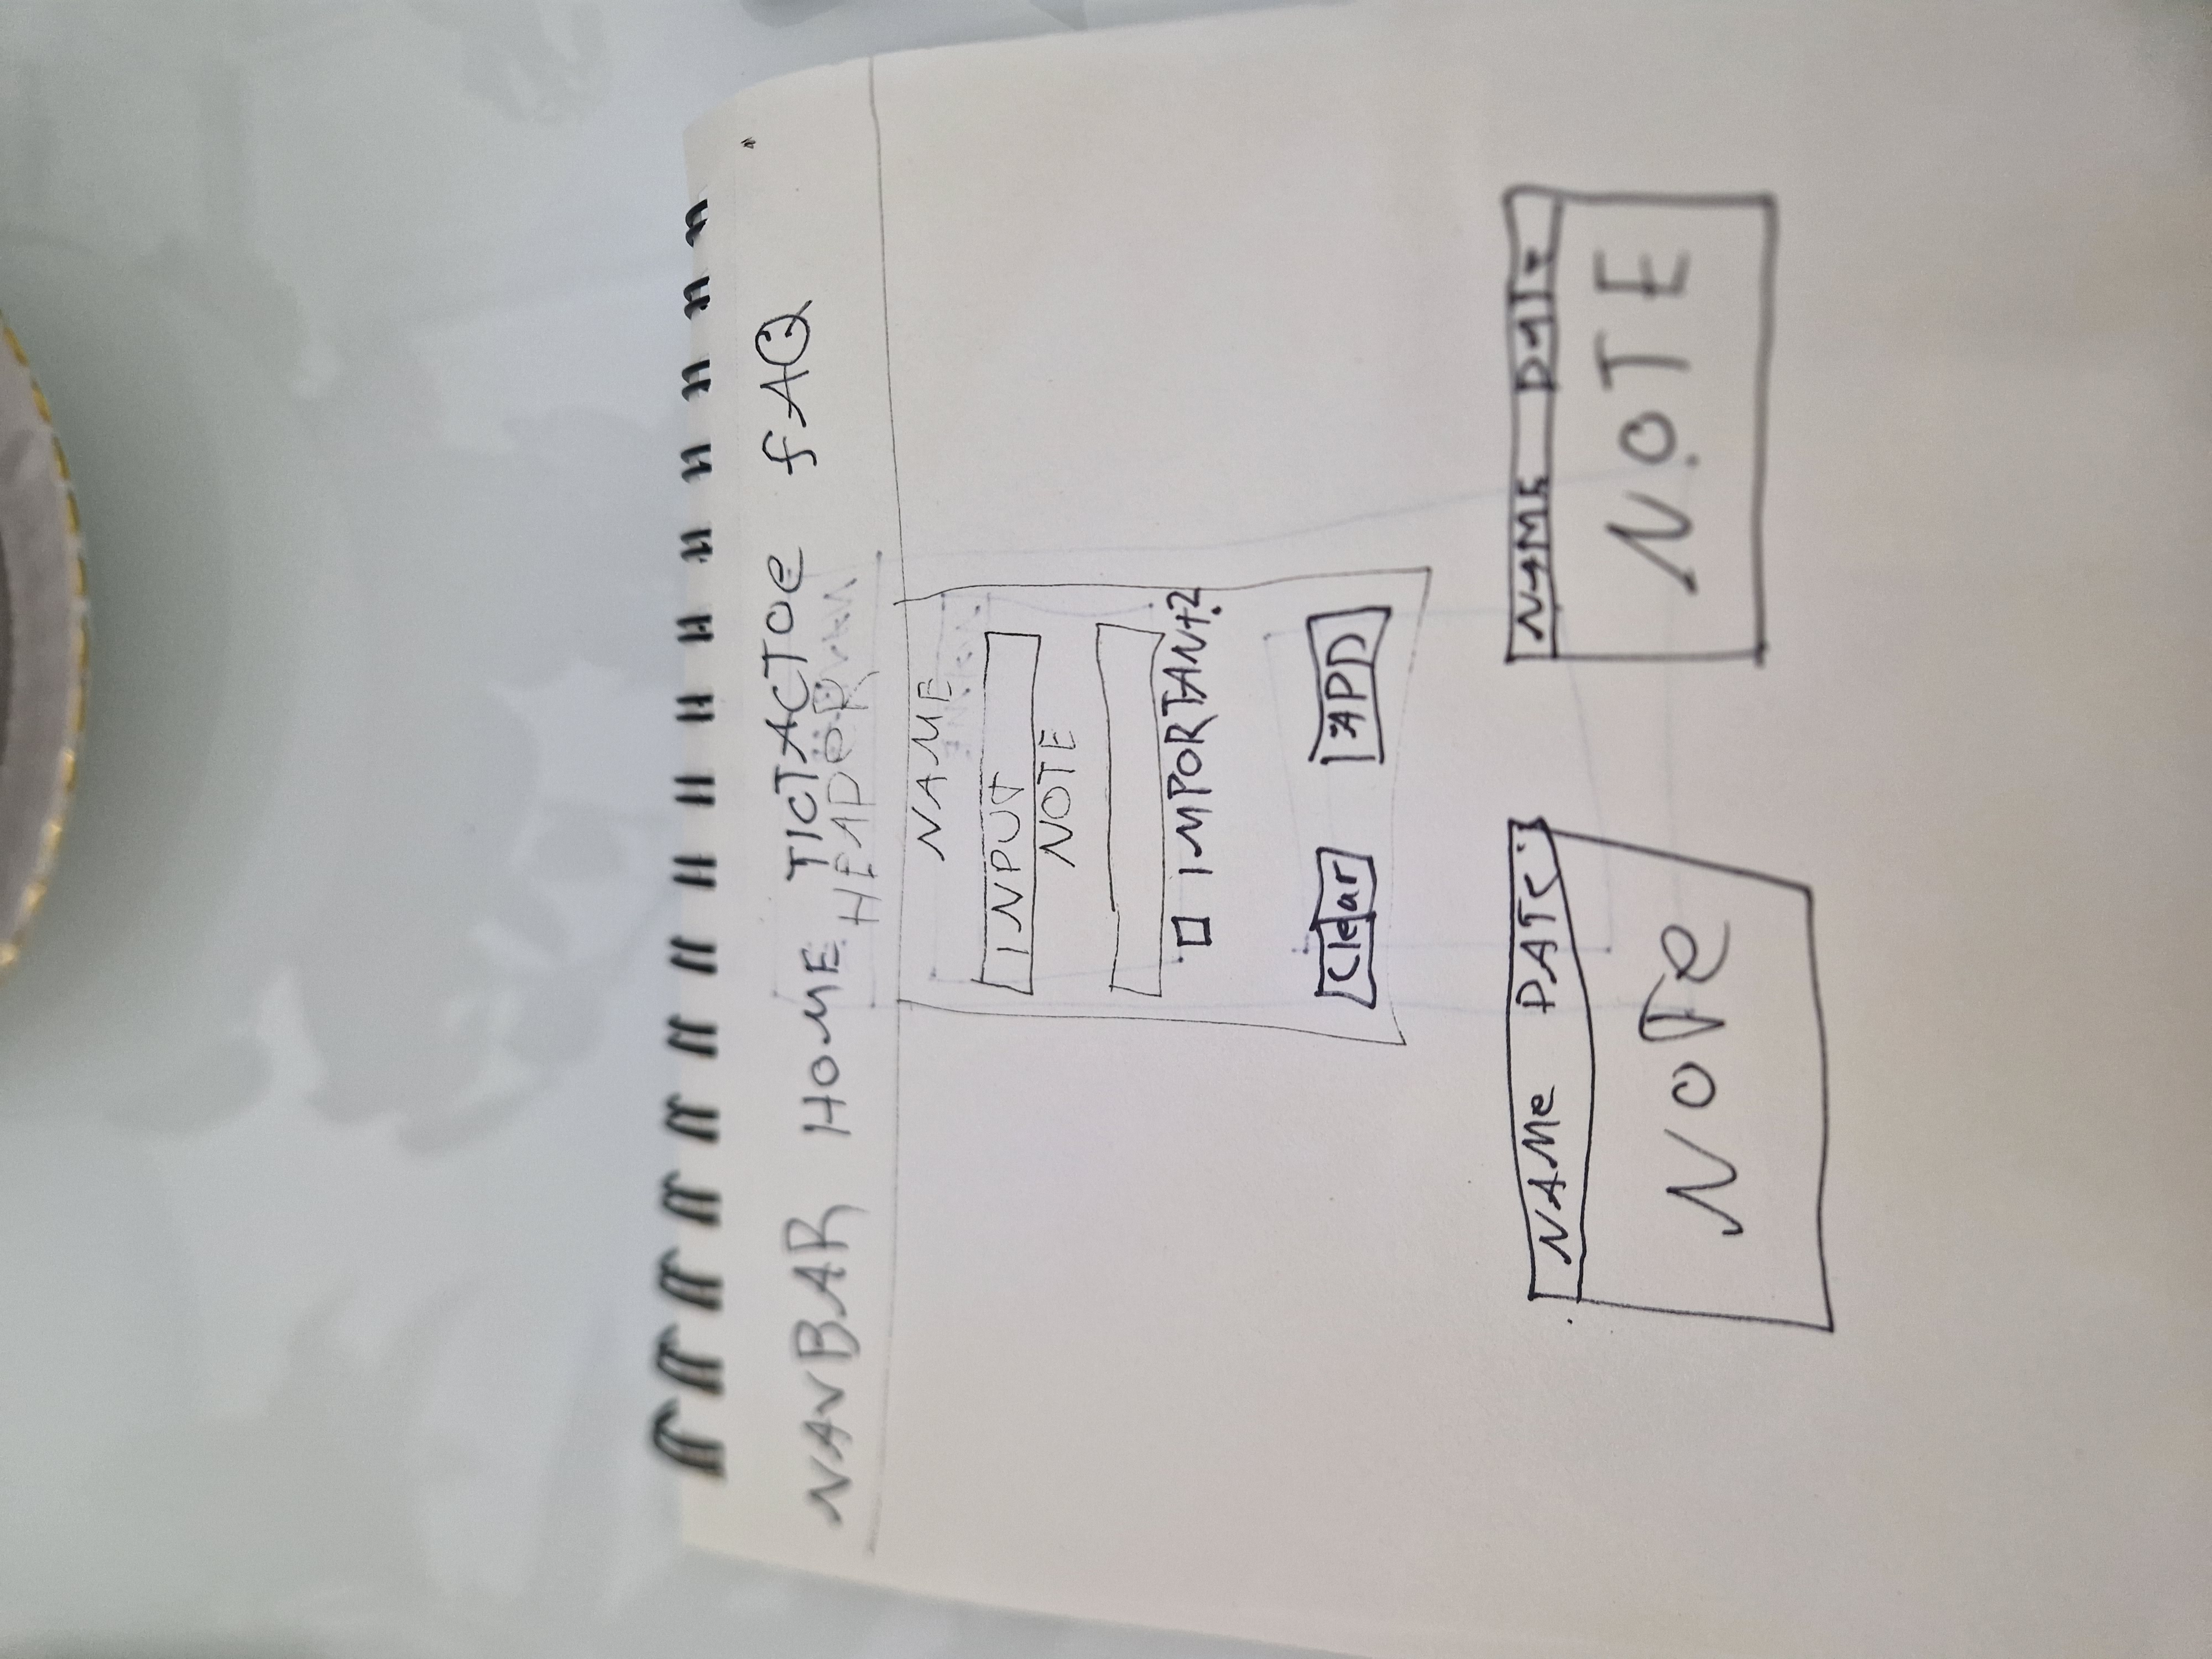 NAVBAR HOME TICTACTOE fAQ
HEADER
NAME
INPUT
NOTE
IMPORTANt?
Clear ADD
NAMe DATE
NoTe
NAME DATE
NOTE